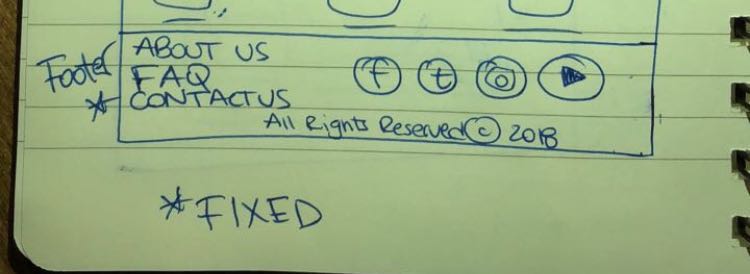 Footer
ABOUT US
FAQ
* CONTACT US
f t
All Rights Reserved © 2018
* FIXED